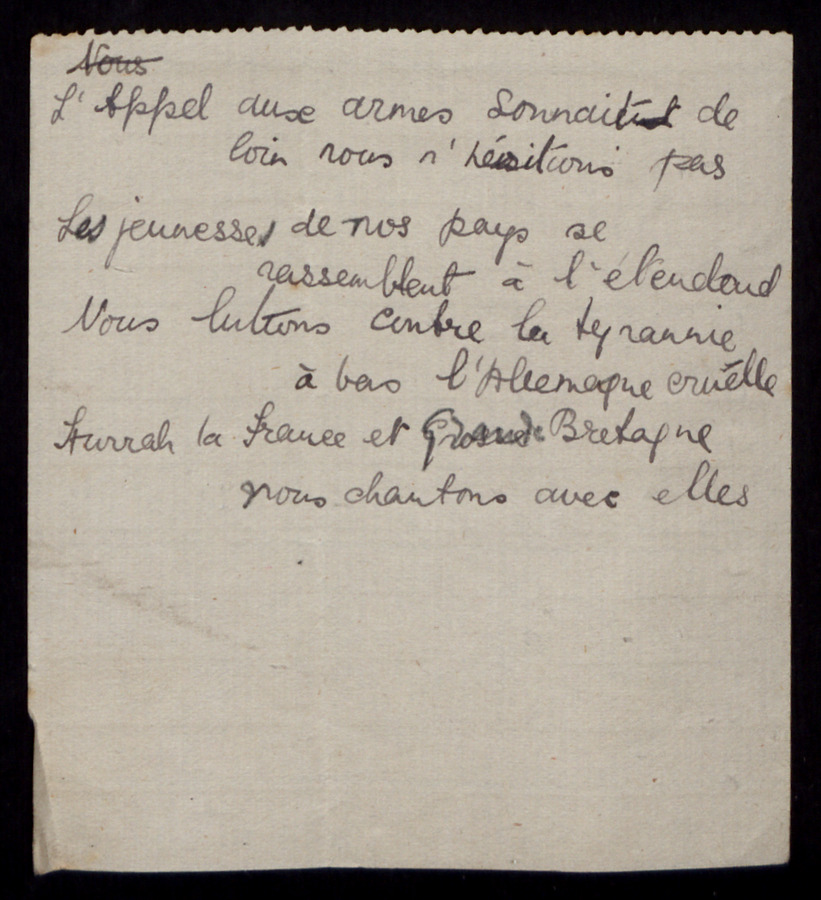 Nous
L'Appel aux armes Sonnait de
loin nous n'hésitions pas
Les jeunesses de nos pays se
rassemblent à l'étendard
Nous luttons contre la tyrannie
à bas l'Allemagne cruelle
Hurrah la France et Grande Bretagne
nous chantons avec elles